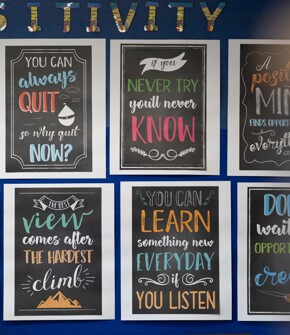 SITIVITY
YOU CAN
always
QUIT
so why quit
NOW?
if you
NEVER TRY
you'll never
KNOW
A
MIN
FINDS OPPORT
THE BEST
view
comes after
THE HARDEST
climb
YOU CAN
LEARN
something new
EVERYDAY
if
YOU LISTEN
wait
OPPORT